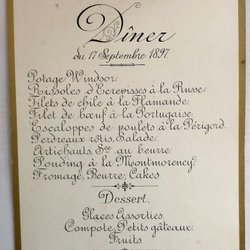 Dîner
du 17 Septembre 1897.
Potage Windsor.
Rissoles d'Ecrevisses à la Russe
Filets de chile à la Flamande.
Filet de bœuf à la Portugaise
Escaloppes de poulets à la Périgord.
Perdreaux rôtis, Salade.
Artichauts, Sce au beurre.
Pouding à la Montmorency
Fromage, Beurre, Cakes.
Dessert.
Glaces Assorties
Compote, Petits gâteaux.
Fruits